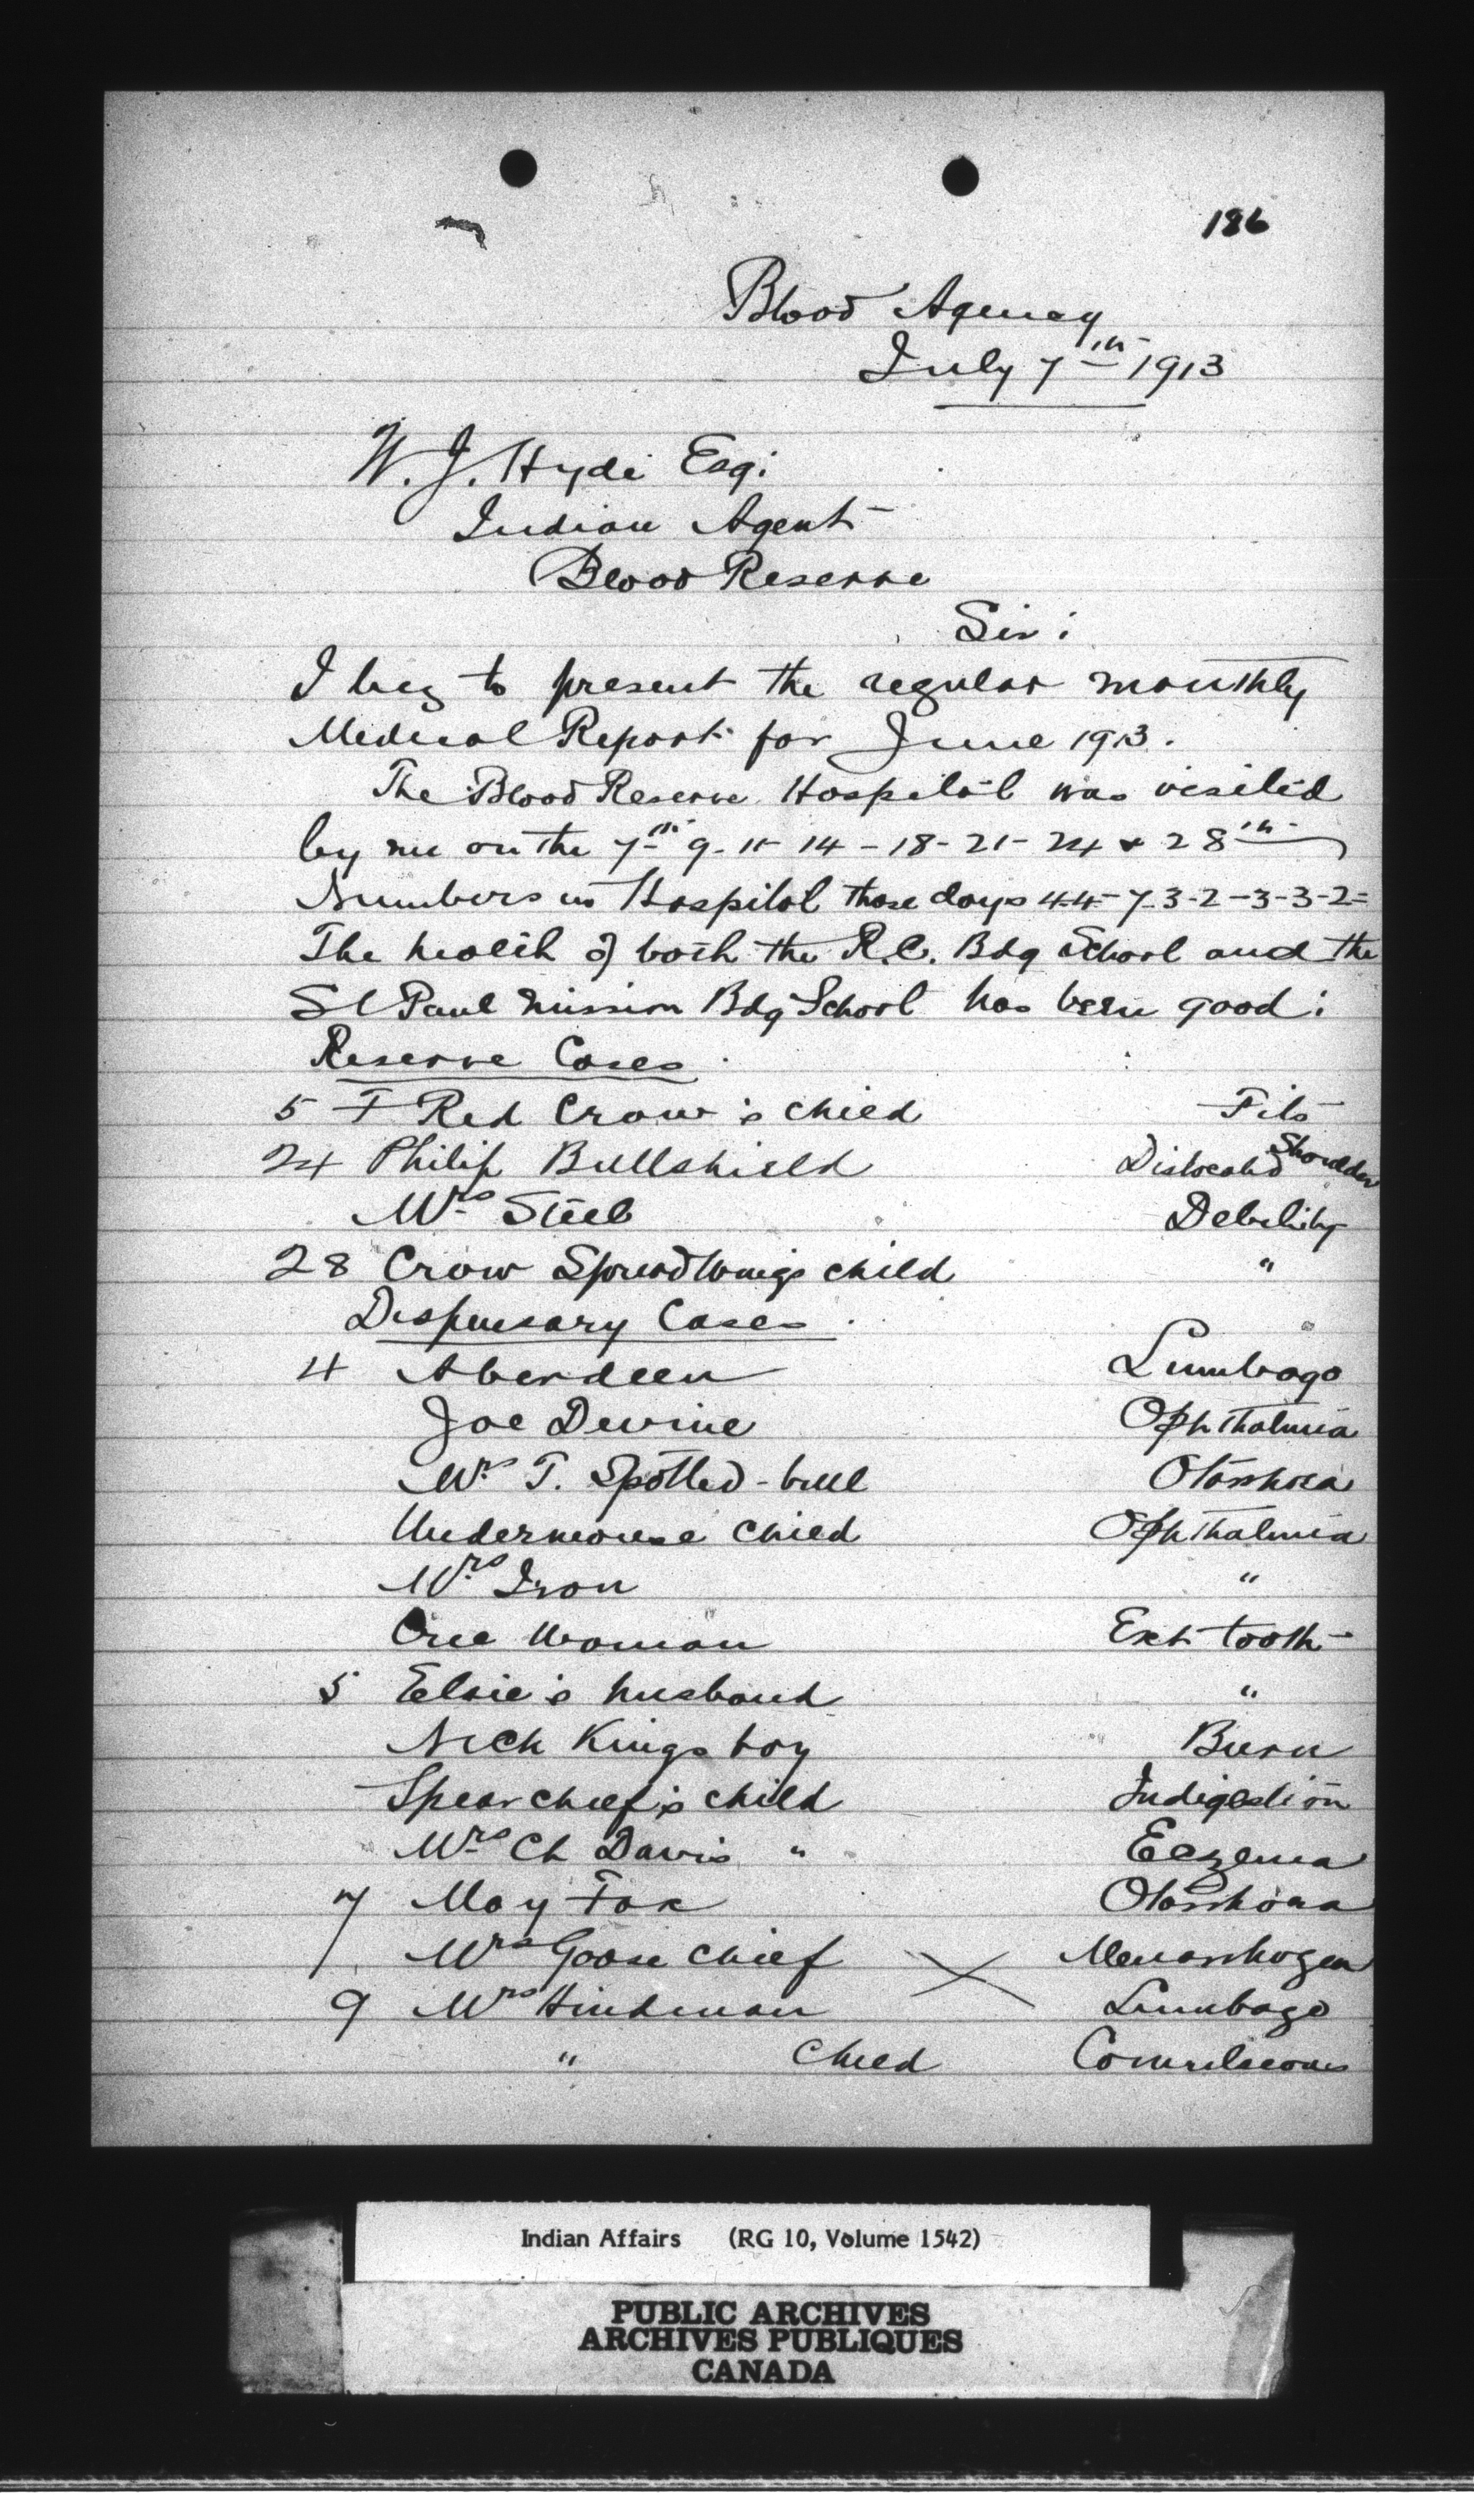 186
Blood Agency
July 7th 1913
W. J. Hyde Esq:
Indian Agent
Blood Reserve
Sir:
I beg to present the regular monthly
Medical Report for June 1913.
The Blood Reserve Hospital was visited
by me on the 7th 9- 11- 14 - 18- 21- 24 & 28th
Numbers in Hospital those days 4-4- 7-3-2-3-3-2=
The health of both the R.C. Bdg School and the
St Paul Mission Bdg School has been good:
Reserve Cases
5 F Red Crow's child Fits
24 Philip Bullshield Dislocated Shoulder
Mrs Steel Debility
28 Crow Spreadwings child "
Dispensary Cases
4 Aberdeen Lumbago
Joe Devine Ophthalmia
Mrs T. Spotted-bull Otorrhoea
Undermouse child Ophthalmia
Mrs Iron "
Cree Woman Ext tooth
5 Elsie's husband "
Nick Kings boy Burn
Spear chief's child Indigestion
Mrs Ch Davis " Eczema
7 May Fox Otorrhoea
Mrs Goose Chief X
9 Mrs Hindman Lumbago
" child Convulsions
Indian Affairs (RG 10, Volume 1542)
PUBLIC ARCHIVES
ARCHIVES PUBLIQUES
CANADA